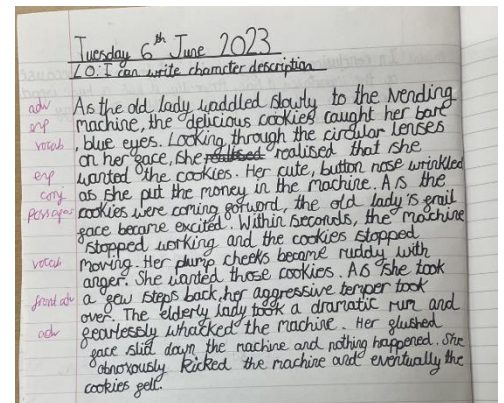 Tuesday 6th June 2023
LO: I can write character description
adv As the old lady waddled slowly to the vending
exp machine, the delicious cookies caught her bare
vocab , blue eyes. Looking through the circular lenses
on her face, she realised realised that she
exp wanted the cookies. Her cute, button nose wrinkled
conj as she put the money in the machine. As the
poss apos cookies were coming forword, the old lady's frail
face became excited. Within seconds, the machine
stopped working and the cookies stopped
vocab moving. Her plump cheeks became ruddy with
anger. She wanted those cookies. As she took
front adv a few steps back, her aggressive temper took
over. The elderly lady took a dramatic run and
adv fearlessly whacked the machine. Her flushed
face slid down the machine and nothing happened. She
obnoxously kicked the machine and eventually the
cookies fell.